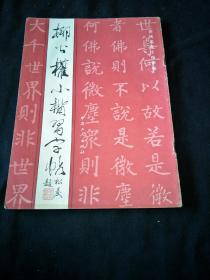 世尊何以故若是
者佛則不說是微塵
何佛說微塵衆則
大千世界則非世界
柳公權小楷習字帖
題